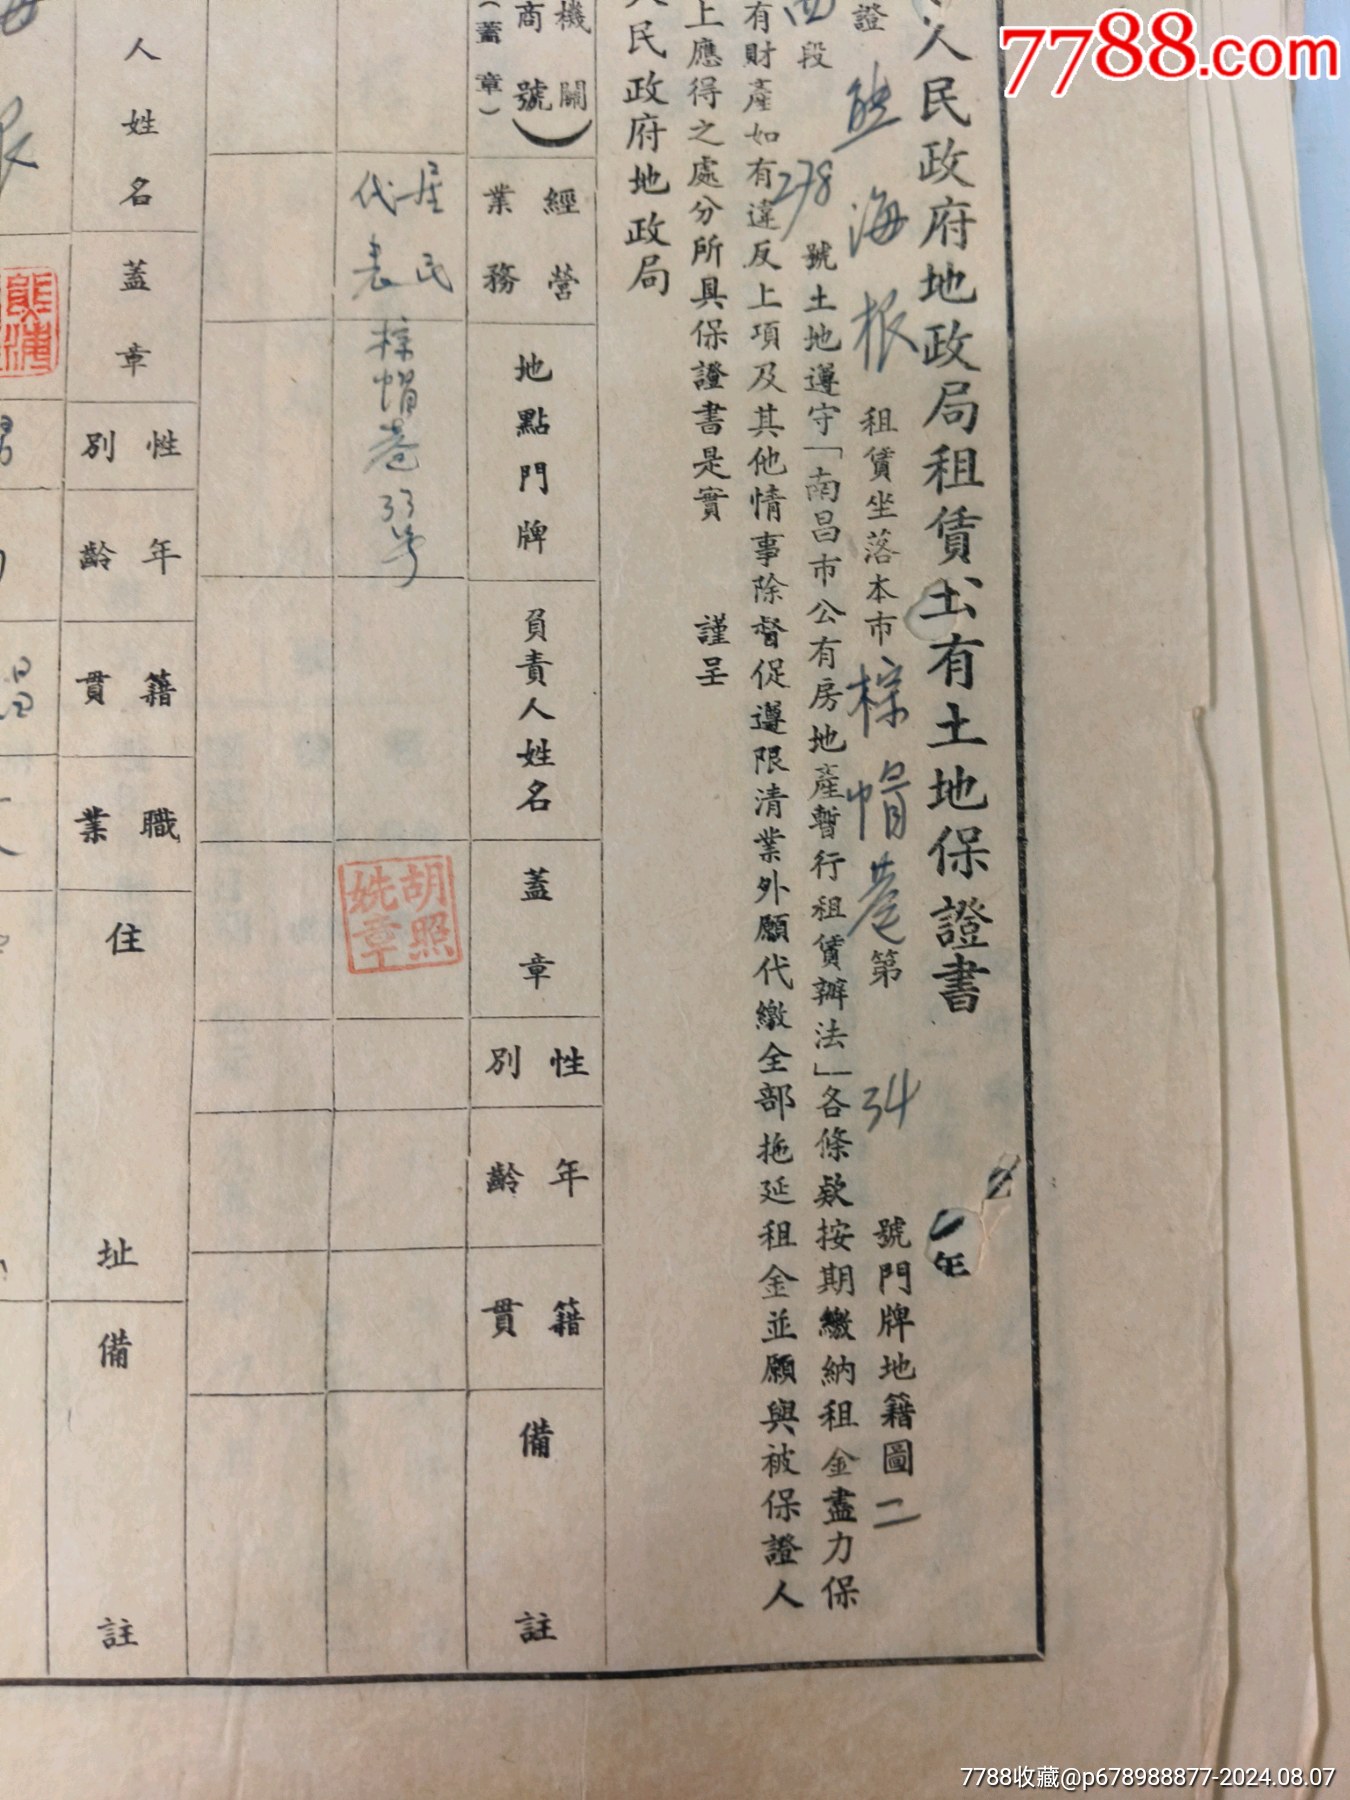 7788.com
人民政府地政局租賃公有土地保證書
年
證 熊海根 租賃坐落本市 棕帽巷 第 34 號門牌地籍圖二
段 278 號土地遵守「南昌市公有房地產暫行租賃辦法」各條款按期繳納租金盡力保
有財產如有違反上項及其他情事除督促遵限清業外願代繳全部拖延租金並願與被保證人
上應得之處分所具保證書是實 謹呈
人民政府地政局
機關
商號
(蓋章)
經營
業務
地點門牌
負責人姓名
蓋章
性別
年齡
籍貫
備註
居民
代表
棕帽巷33号
胡照
姚章
人姓名
蓋章
性別
年齡
籍貫
職業
住址
備註
7788收藏@p678988877-2024.08.07